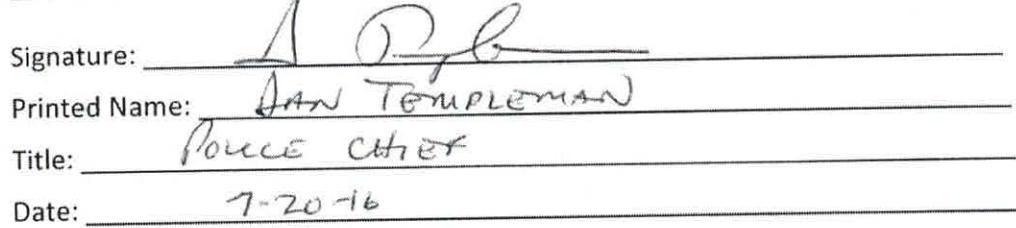 Signature:
Printed Name: DAN TEMPLEMAN
Title: POLICE CHIEF
Date: 7-20-16